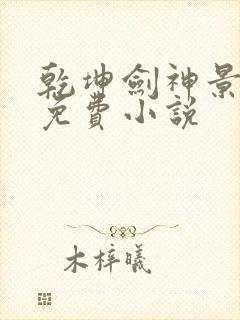 乾坤劍神景
免費小說
木梓曦